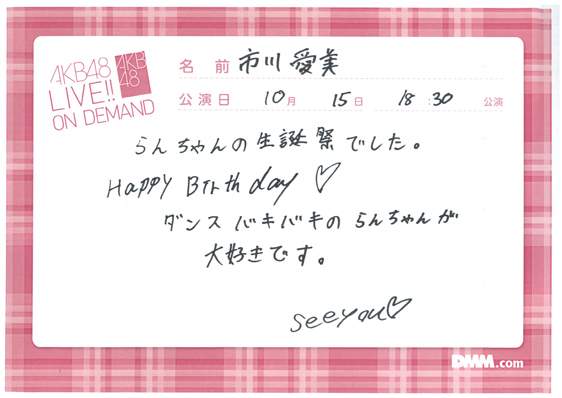 AKB48
LIVE!!
ON DEMAND
AKB
48
名前 市川愛美
公演日 10月 15日 18:30 公演
らんちゃんの生誕祭でした。
HAPPY Birthday ♡
ダンスバキバキのらんちゃんが
大好きです。
see you♡
DMM.com